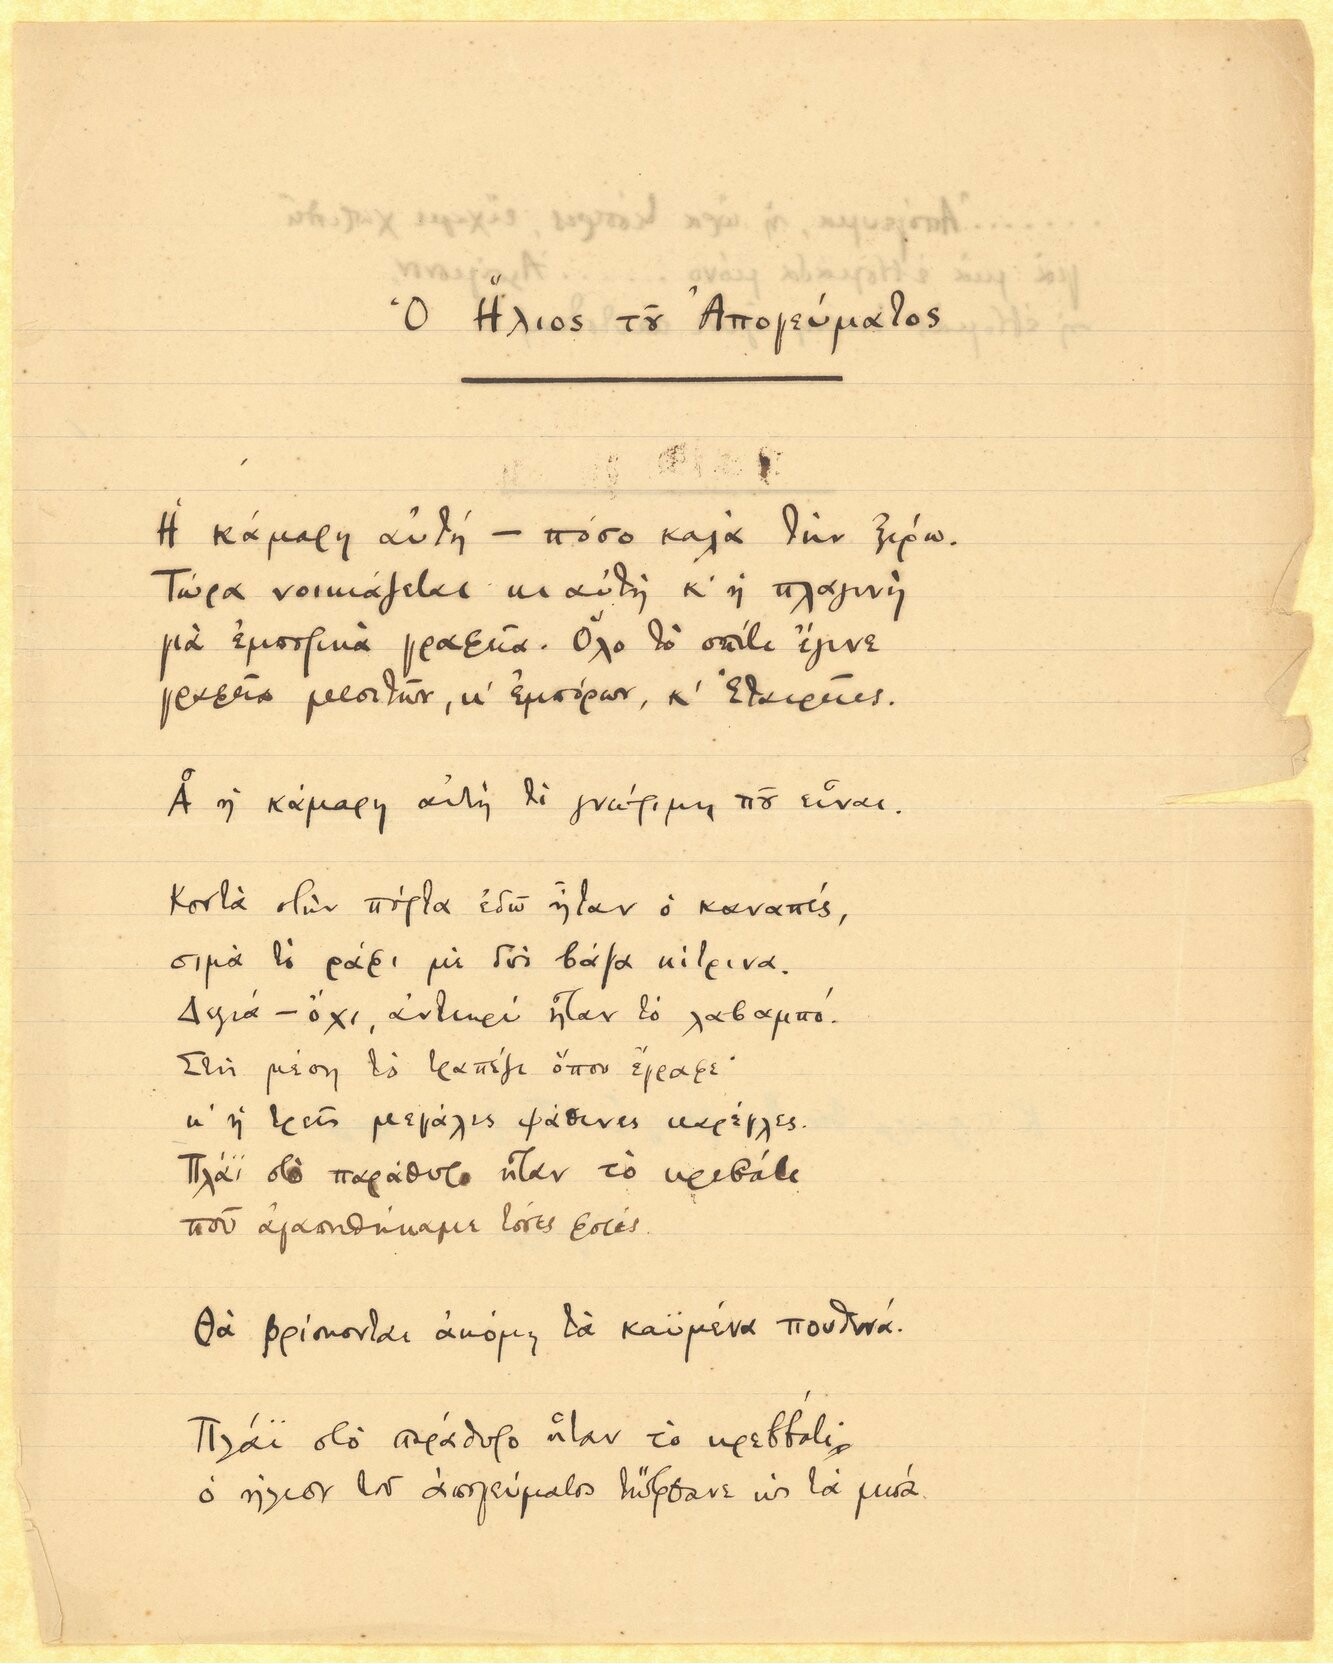 Ὁ Ἥλιος τοῦ Ἀπογεύματος
Ἡ κάμαρη αὐτή — πόσο καλὰ τὴν ξέρω.
Τώρα νοικιάζεται κι αὐτὴ κ' ἡ πλαγινὴ
γιὰ ἐμπορικὰ γραφεῖα. Ὅλο τὸ σπίτι ἔγινε
γραφεῖα μεσιτῶν, κ' ἐμπόρων, κ' Ἑταιρεῖες.
Ἆ ἡ κάμαρη αὐτὴ τὶ γνώριμη ποῦ εἶναι.
Κοντὰ στὴν πόρτα ἐδῶ ἦταν ὁ καναπές,
σιμὰ τὸ ράφι μὲ δυὸ βάζα κίτρινα.
Δεξιά — ὄχι, ἀντικρὺ ἦταν τὸ λαβαμπό.
Στὴ μέση τὸ τραπέζι ὅπου ἔγραφε·
κ' ἡ τρεῖς μεγάλες ψάθινες καρέγλες.
Πλάϊ στὸ παράθυρο ἦταν τὸ κρεβάτι
ποῦ ἀγαπηθήκαμε τόσες φορές.
Θὰ βρίσκονται ἀκόμη τὰ καϋμένα πουθενά.
Πλάϊ στὸ παράθυρο ἦταν τὸ κρεββάτι·
ὁ ἥλιος τοῦ ἀπογεύματος τὤφθανε ὡς τὰ μισά.